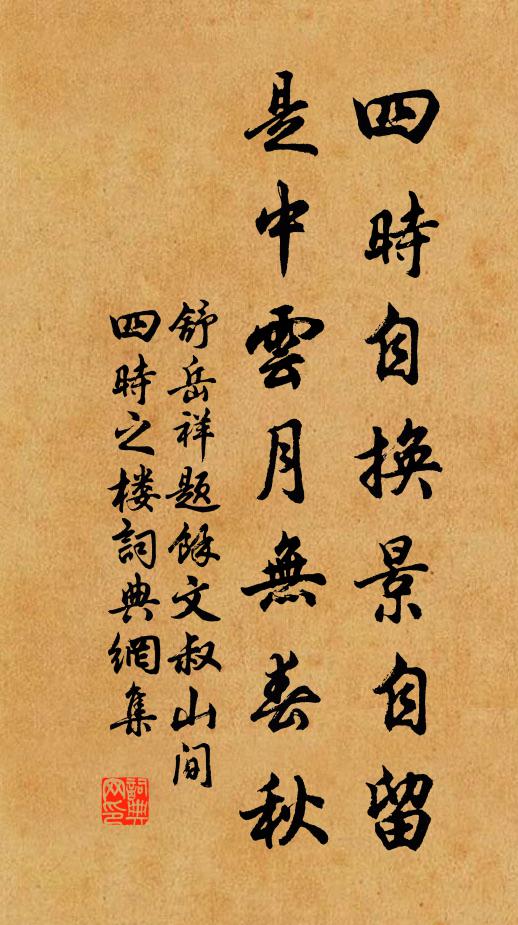 四時自換景自留
是中雲月無春秋
舒岳祥题餘文叔山间
四時之楼詞典網集
詞典网印